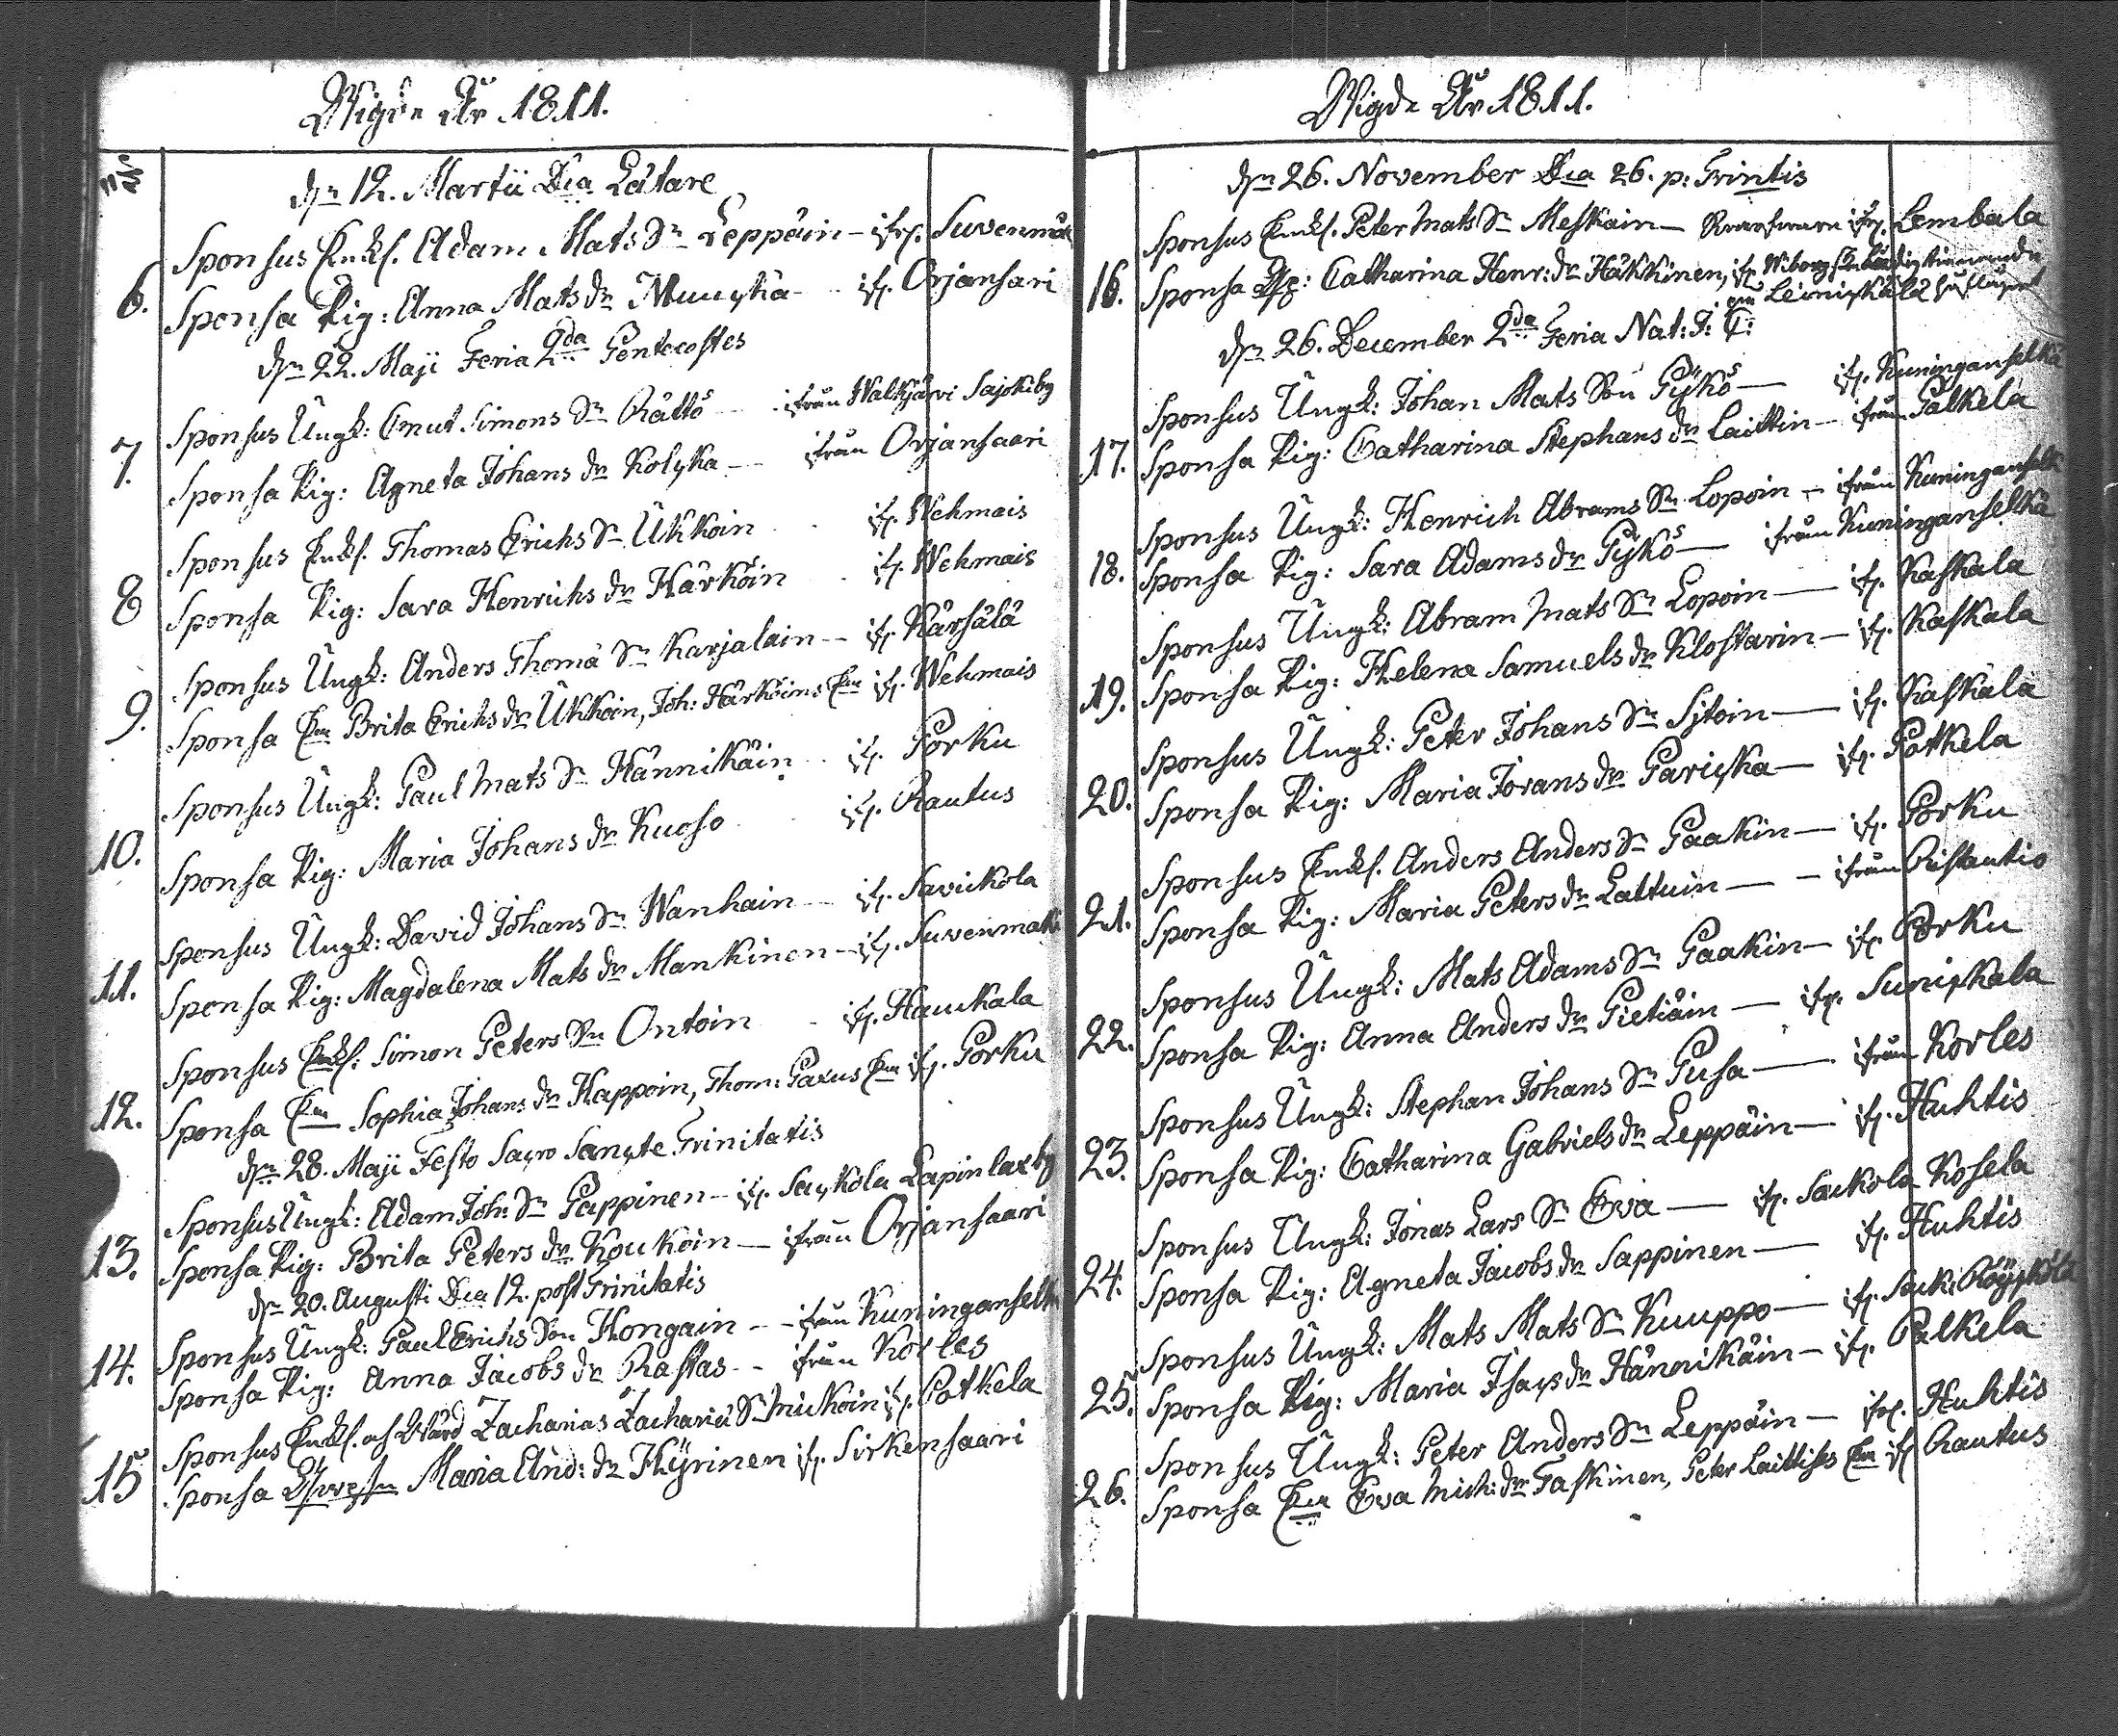 Wigde År 1811.
No
dn 12. Martii Dca Lätare
Sponsus Enkl. Adam Mats Sn Leppäin - ifr. Suvenmäk
6. Sponsa Pig: Anna Mats dr Muuska - if. Orjansari
dn 22. Maji Feria 2da Pentecostes
Sponsus Ungk: Cnut Simons Sn Rättö - ifrån Walkjärvi Sajokiby
7. Sponsa Pig: Agneta Johans dr Kolska - ifrån Orjansaari
Sponsus Enkl. Thomas Erichs Sn Ukkoin if. Wehmais
8 Sponsa Pig: Sara Henrichs dr Härköin if. Wehmais
Sponsus Ungk: Anders Thomæ Sn Karjalain - if. Kärsälä
9. Sponsa Enk Brita Erichs dr Ukkoin, Joh: Härköins Enk if. Wehmais
Sponsus Ungk: Paul Mats Sn Hännikäin if. Porku
10. Sponsa Pig: Maria Johans dr Kuoso if. Rautus
Sponsus Ungk: David Johans Sn Wanhain - if. Savickola
11. Sponsa Pig: Magdalena Mats dr Mankinen - if. Suvenmäki
Sponsus Enkl. Simon Peters Sn Ontoin if. Haukala
12. Sponsa Enk Sophia Johans dr Happoin, Thom: Paxus Enk if. Porku
dn 28. Maji Festo Sacro Sancte Trinitatis
Sponsus Ungk: Adam Joh: Sn Pappinen - if. Sackola Lapinlaxby
13. Sponsa Pig: Brita Peters dr Koukoin - ifrån Orjansaari
dn 20. Augusti Dca 12. post Trinitatis
Sponsus Ungk: Paul Erichs Son Hongain - ifrån Kuninganselkä
14. Sponsa Pig: Anna Jacobs dr Rastas - ifrån Korles
Sponsus Enkl. och Wärd Zacharias Zachariæ Sn Mickoin if. Potkela
15 Sponsa Maria And: dr Hÿrinen if. Sirkensaari
Wigde År 1811.
dn 26. November Dca 26. p: Trintis
Sponsus Enkl. Peter Mats Sn Meskain - ifr. Lembala
16. Sponsa Catharina Henr: dr Häkkinen, if. Wiborg
Leinickälä
dn 26. December 2da Feria Nat: J: C:
Sponsus Ungk: Johan Mats Son Pÿkö - if. Kuninganselkä
17. Sponsa Pig: Catharina Stephans dr Laittin - ifrån Palkela
Sponsus Ungk: Henrich Abrams Sn Lopoin - ifrån Kuninganselkä
18. Sponsa Pig: Sara Adams dr Pÿkö - ifrån Kuninganselkä
Sponsus Ungk: Abram Mats Sn Lopoin - if. Kaskala
19. Sponsa Pig: Helena Samuels dr Klostarin - if. Kaskala
Sponsus Ungk: Peter Johans Sn Sjtoin - if. Kaskala
20. Sponsa Pig: Maria Jörans dr Pariska - if. Potkela
Sponsus Enkl. Anders Anders Sn Paakin - if. Porku
21. Sponsa Pig: Maria Peters dr Lattuin - ifrån Riskautio
Sponsus Ungk: Mats Adams Sn Paakin - if. Porku
22. Sponsa Pig: Anna Anders dr Pietiäin - ifr. Sunickala
Sponsus Ungk: Stephan Johans Sn Pusa - ifrån Korles
23. Sponsa Pig: Catharina Gabriels dr Leppäin - if. Huhtis
Sponsus Ungk: Jonas Lars Sn Eva - if. Sackola Kosela
24. Sponsa Pig: Agneta Jacobs dr Sappinen - if. Huhtis
Sponsus Ungk: Mats Mats Sn Kuuppo - if. Sack: Röÿskölä
25. Sponsa Pig: Maria Isacs dr Hännikäin - if. Palkela
Sponsus Ungk: Peter Anders Sn Leppäin - ifr. Huhtis
26. Sponsa Enk Eva Mich: dr Taskinen, Peter Laittises Enk if. Rautus